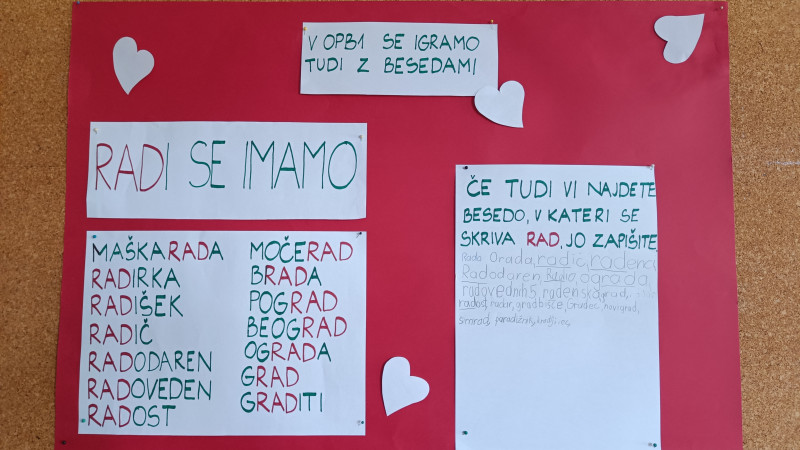 V OPB1 SE IGRAMO
TUDI Z BESEDAMI
RADI SE IMAMO
MAŠKARADA
RADIRKA
RADIŠEK
RADIČ
RADODAREN
RADOVEDEN
RADOST
MOČERAD
BRADA
POGRAD
BEOGRAD
OGRADA
GRAD
GRADITI
ČE TUDI VI NAJDETE
BESEDO, V KATERI SE
SKRIVA RAD, JO ZAPIŠITE
Rada Orada, radič, radenci
Radodaren, ograda,
radovednih5, radenska, grad,
radost, radar, gradišče, novigrad,
Simrad,